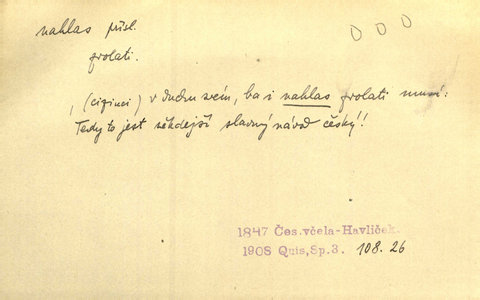 nahlas přísl.
zvolati.
, (cizinci) v duchu svém, ba i nahlas zvolati musí:
Tedy to jest někdejší slavný národ český!!
1847 Čes.včela-Havlíček.
1908 Quis,Sp.3. 108.26